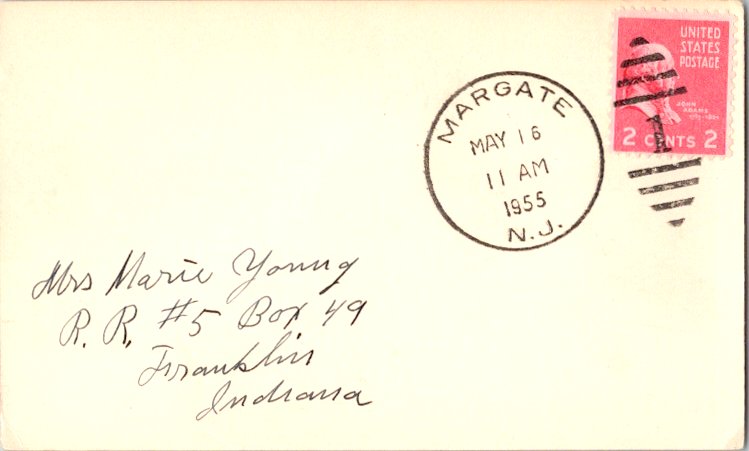 UNITED
STATES
POSTAGE
JOHN
ADAMS
2 CENTS 2
1
MARGATE
MAY 16
11 AM
1955
N.J.
Mrs Marie Young
R. R. #5 Box 49
Franklin
Indiana